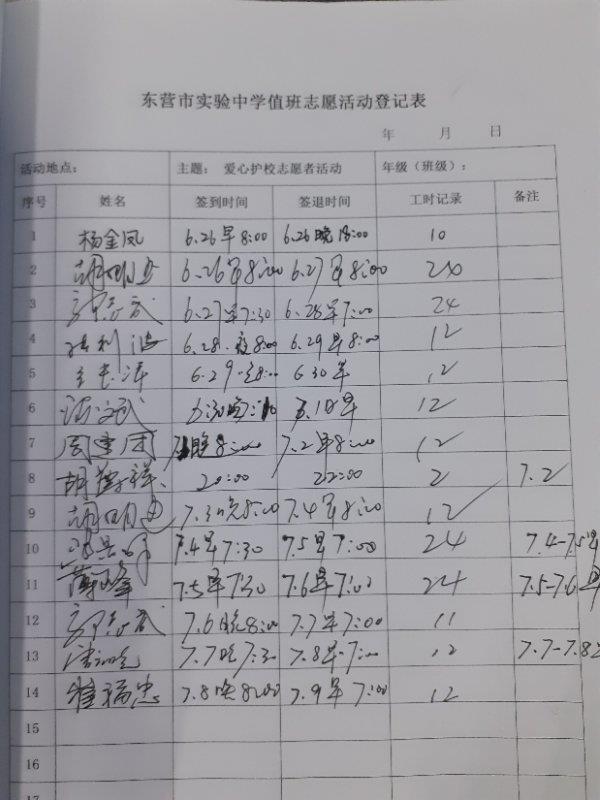 东营市实验中学值班志愿活动登记表
年 月 日
活动地点: 主题: 爱心护校志愿者活动 年级(班级):
序号 姓名 签到时间 签退时间 工时记录 备注
1 杨金凤 6.26早8:00 6.26晚18:00 10
2 6.26早8:00 6.27早8:00 24
3 6.27早7:30 6.28早7:00 24
4 6.28.夜8:00 6.29早8:00 12
5 6.29 8:00 6.30早 12
6 12
7 周建国 晚8:00 7.2早8:00 12
8 20:00 22:00 2 7.2
9 胡明 7.3晚8:00 7.4早8:00 12
10 7.4早7:30 7.5早7:00 24 7.4-7.5早
11 7.5早7:30 7.6早7:00 24 7.5-7.6早
12 7.6晚8:00 7.7早7:00 11
13 7.7晚7:30 7.8早7:00 12 7.7-7.8
14 崔福忠 7.8晚8:00 7.9早7:00 12
15
16
17